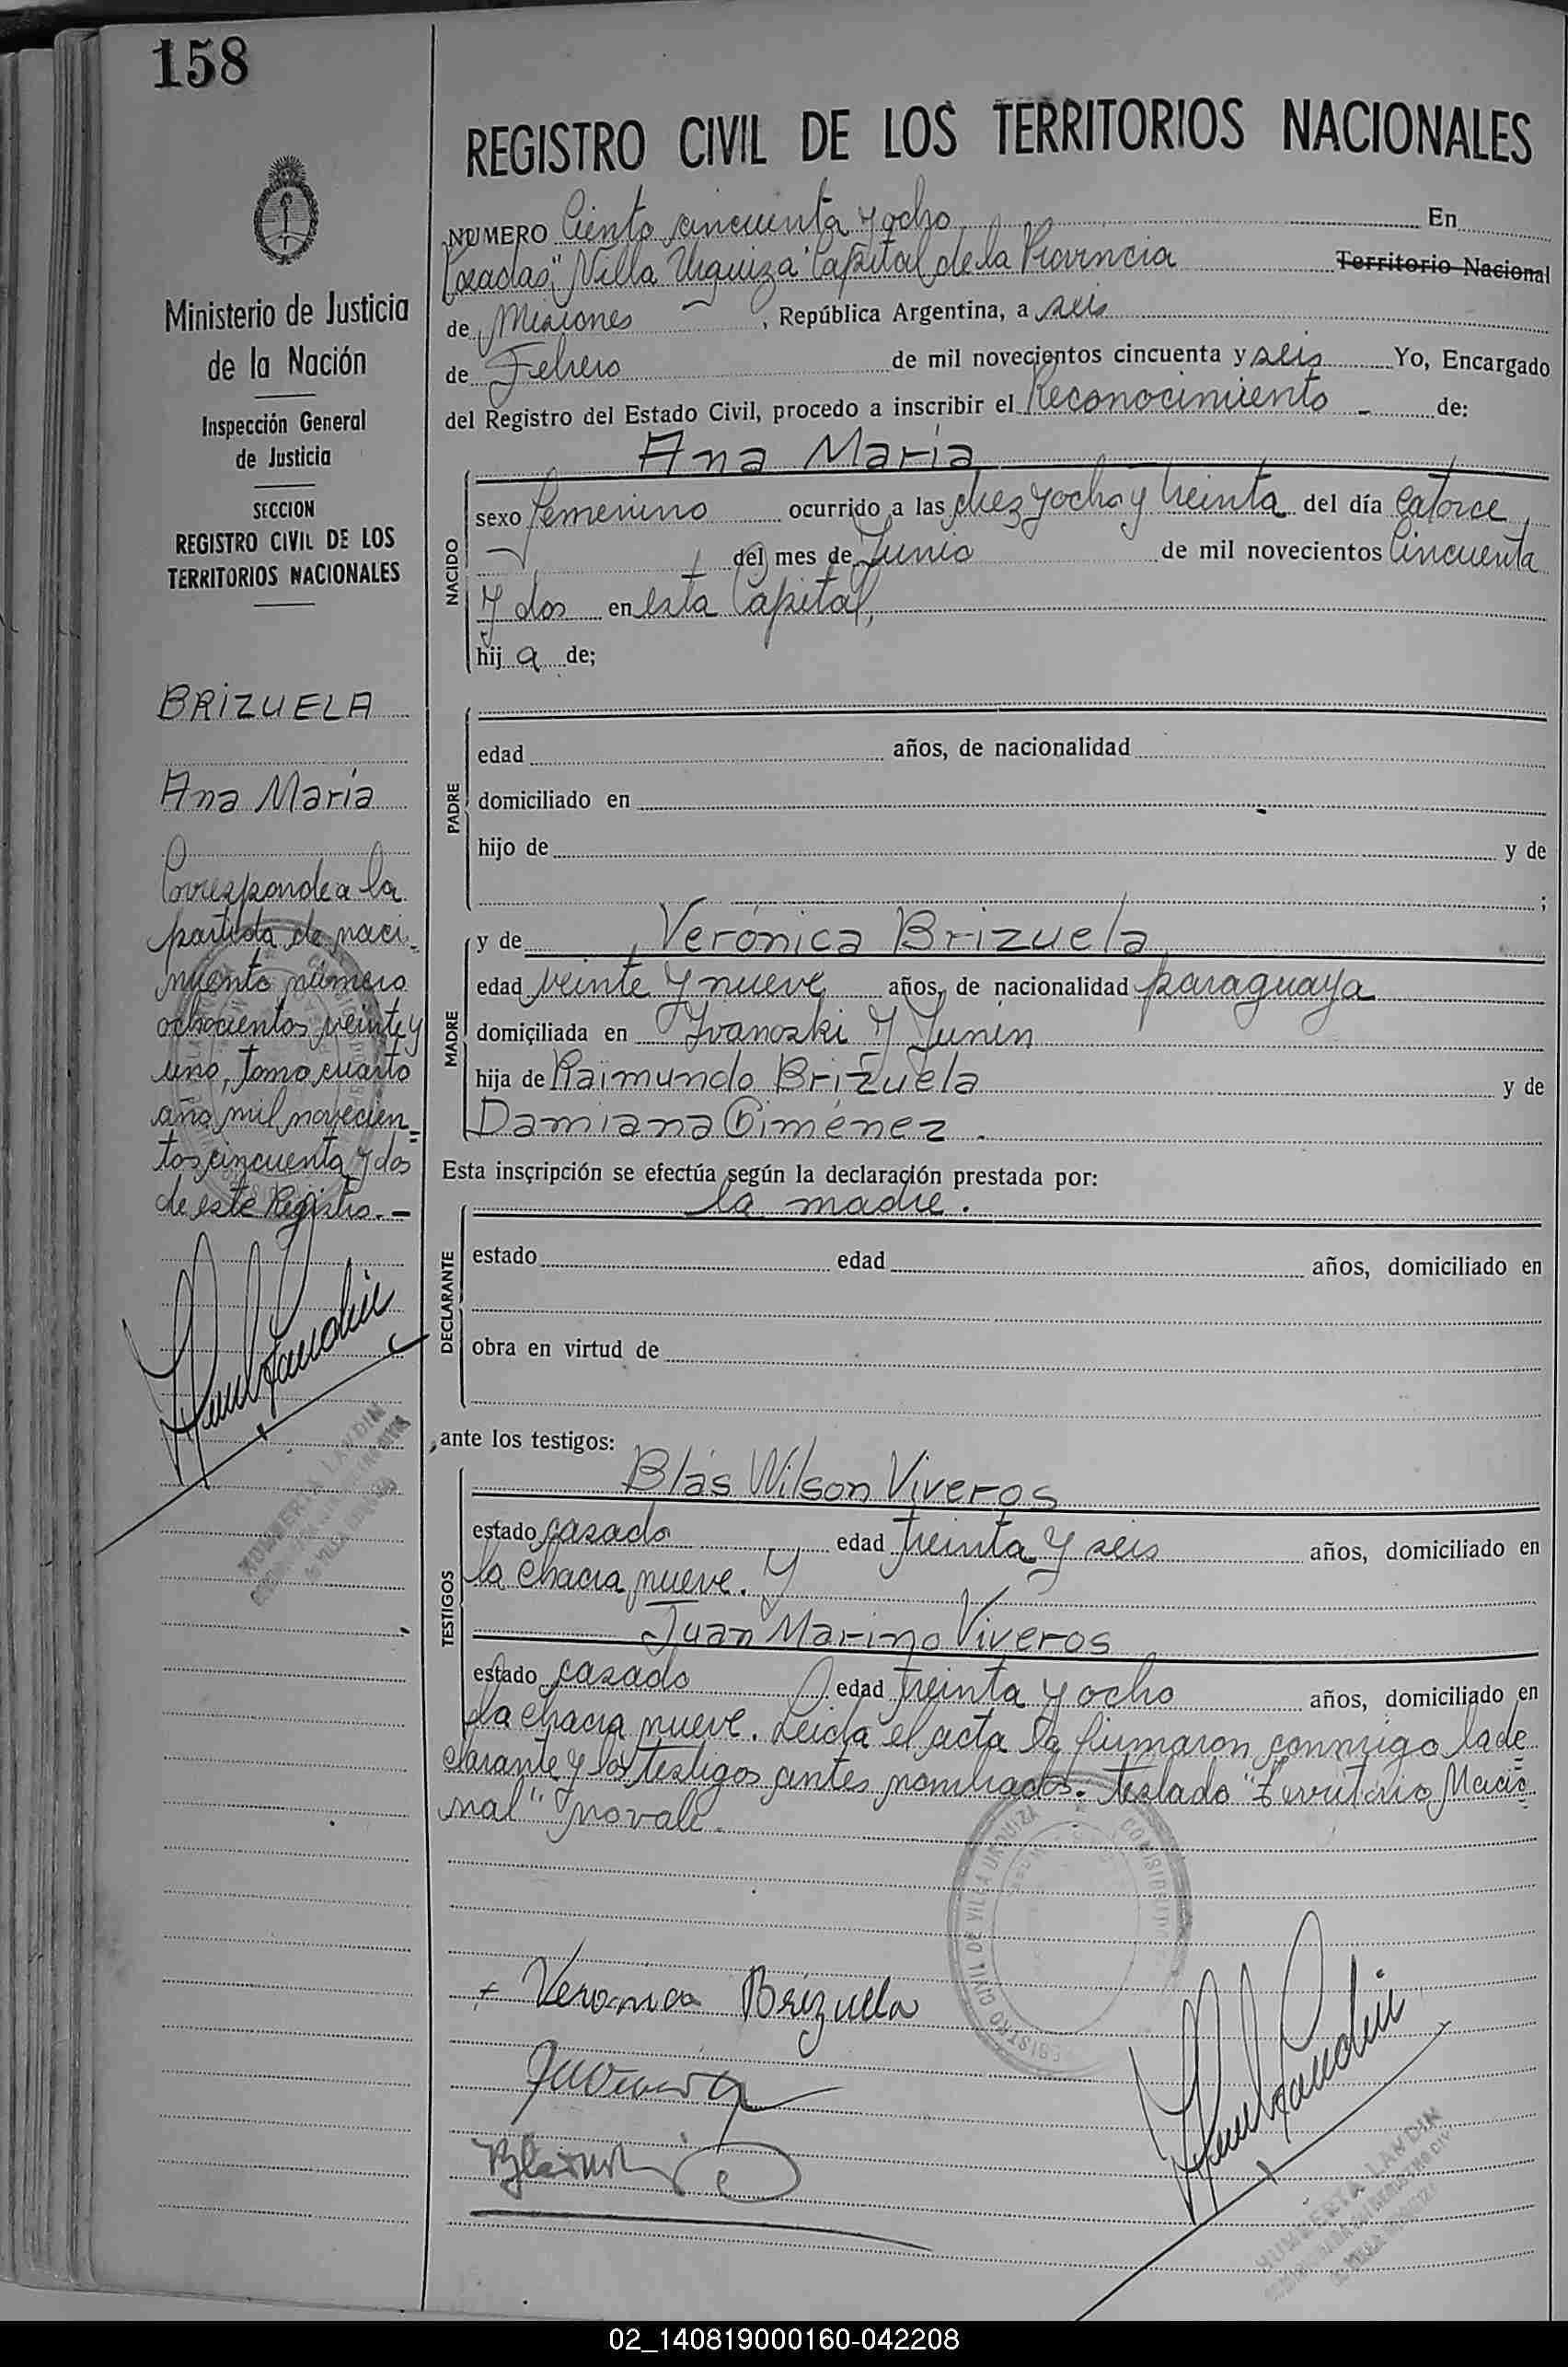 158
Ministerio de Justicia
de la Nación
Inspección General
de Justicia
SECCION
REGISTRO CIVIL DE LOS
TERRITORIOS NACIONALES
BRIZUELA
Ana María
Corresponde a la
partida de naci-
miento número
ochocientos veinte y
uno, tomo cuarto
año mil novecien=
tos cincuenta y dos
de este Registro.-
HUMBERTA LANDIN
REGISTRO CIVIL DE LOS TERRITORIOS NACIONALES
NÚMERO Ciento cincuenta y ocho En
Posadas, "Villa Urquiza" Capital de la Provincia Territorio Nacional
de Misiones, República Argentina, a seis
de Febrero de mil novecientos cincuenta y seis Yo, Encargado
del Registro del Estado Civil, procedo a inscribir el Reconocimiento - de:
Ana María
NACIDO
sexo femenino ocurrido a las diez y ocho y treinta del día catorce
del mes de Junio de mil novecientos Cincuenta
y dos en esta Capital,
hij a de;
PADRE
edad años, de nacionalidad
domiciliado en
hijo de y de
;
MADRE
y de Verónica Brizuela
edad veinte y nueve años, de nacionalidad paraguaya
domiciliada en Ivanoski y Junin
hija de Raimundo Brizuela y de
Damiana Giménez.
Esta inscripción se efectúa según la declaración prestada por:
la madre.
DECLARANTE
estado edad años, domiciliado en
obra en virtud de
ante los testigos:
TESTIGOS
Blás Wilson Viveros
estado casado edad treinta y seis años, domiciliado en
la chacra nueve. Y
Juan Marino Viveros
estado casado edad treinta y ocho años, domiciliado en
la chacra nueve. Leida el acta la firmaron conmigo la de=
clarante y los testigos antes nombrados. Testado "Territorio Nacio=
nal" no vale.
REGISTRO CIVIL DE VILLA URQUIZA
+ Veronica Brizuela
HUMBERTA LANDIN
02_140819000160-042208